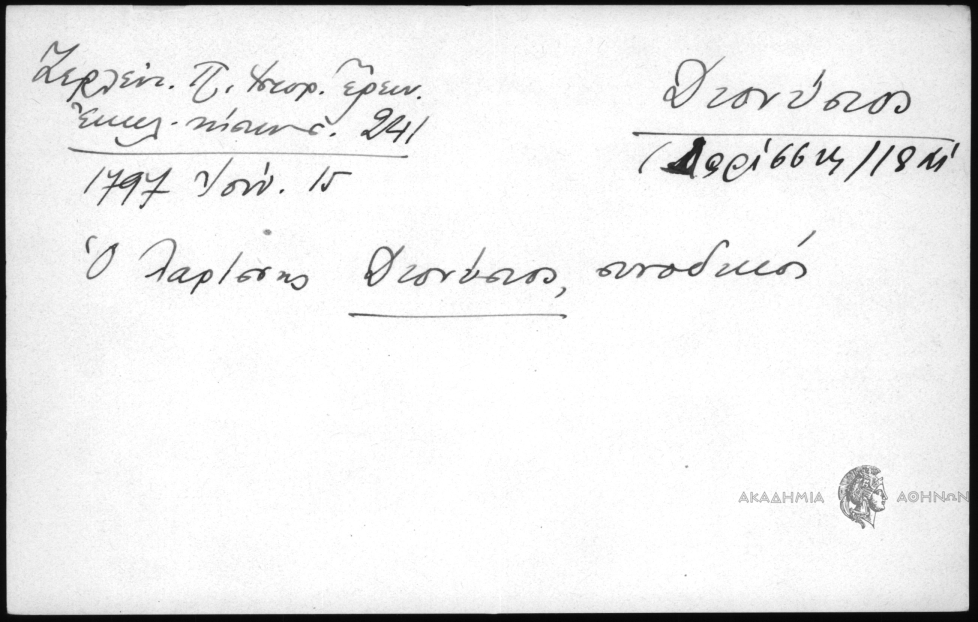 Ζερλέντ. Π. Ιστορ. Ἔρευν.
Ἐκκλ. νήσων 241
1797 Ἰούν. 15
Διονύσιος
(Λαρίσσης/18
Ὁ Λαρίσσης Διονύσιος, συνοδικός
ΑΚΑΔΗΜΙΑ ΑΘΗΝΩΝ